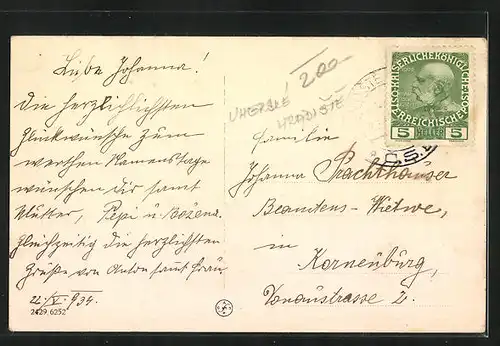 Liebe Johanna!
Die herzlichsten
Glückwünsche zum
werthen Namenstage
wünschen Dir samt
Mutter, Pepi u. Božena.
Gleichzeitig die herzlichsten
Grüße von Anton samt Frau
22./V. 934.
2429 6252
200
UHERSKÉ
HRADIŠTĚ
KAISERLICHE KÖNIGLICHE
ÖSTERREICHISCHE
5 HELLER 5
Familie
Johanna Prachthauser
Beamtens-Witwe,
in
Korneuburg,
Donaustrasse 2.